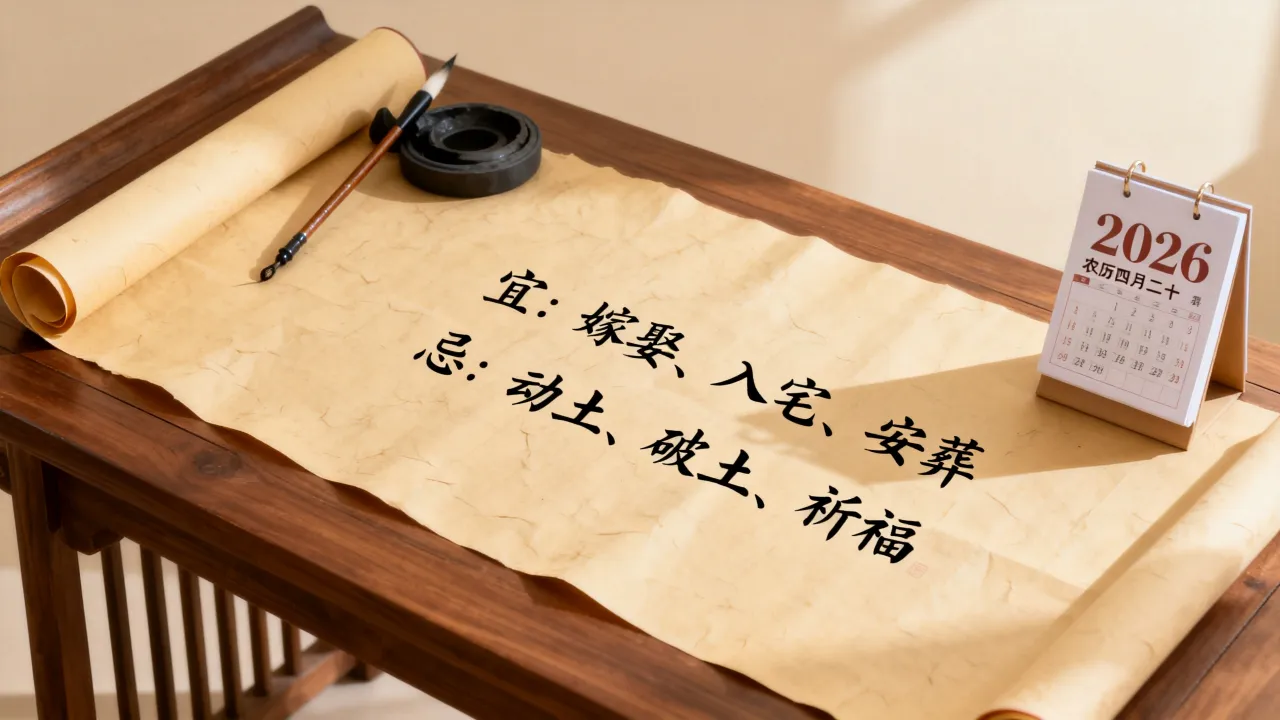 宜：嫁娶、入宅、安葬
忌：动土、破土、祈福
2026
农历四月二十